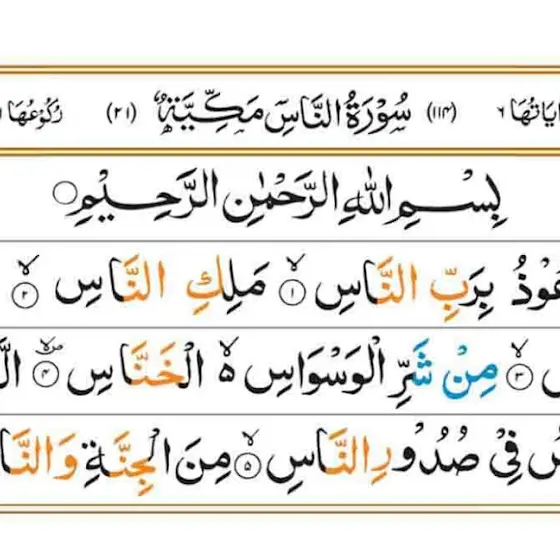 اٰيَاتُهَا ٦ (١١٤) سُوْرَةُ النَّاسِ مَكِّيَّةٌ (٢١) رُكُوْعُهَا
بِسْمِ اللّٰهِ الرَّحْمٰنِ الرَّحِيْمِ
عُوْذُ بِرَبِّ النَّاسِ ۙ‏ ١ مَلِكِ النَّاسِ ۙ‏ ٢
ۙ‏ ٣ مِنْ شَرِّ الْوَسْوَاسِ ەۙ الْخَنَّاسِ ۪ۙ‏ ٤
فِيْ صُدُوْرِ النَّاسِ ۙ‏ ٥ مِنَ الْجِنَّةِ وَالنَّا